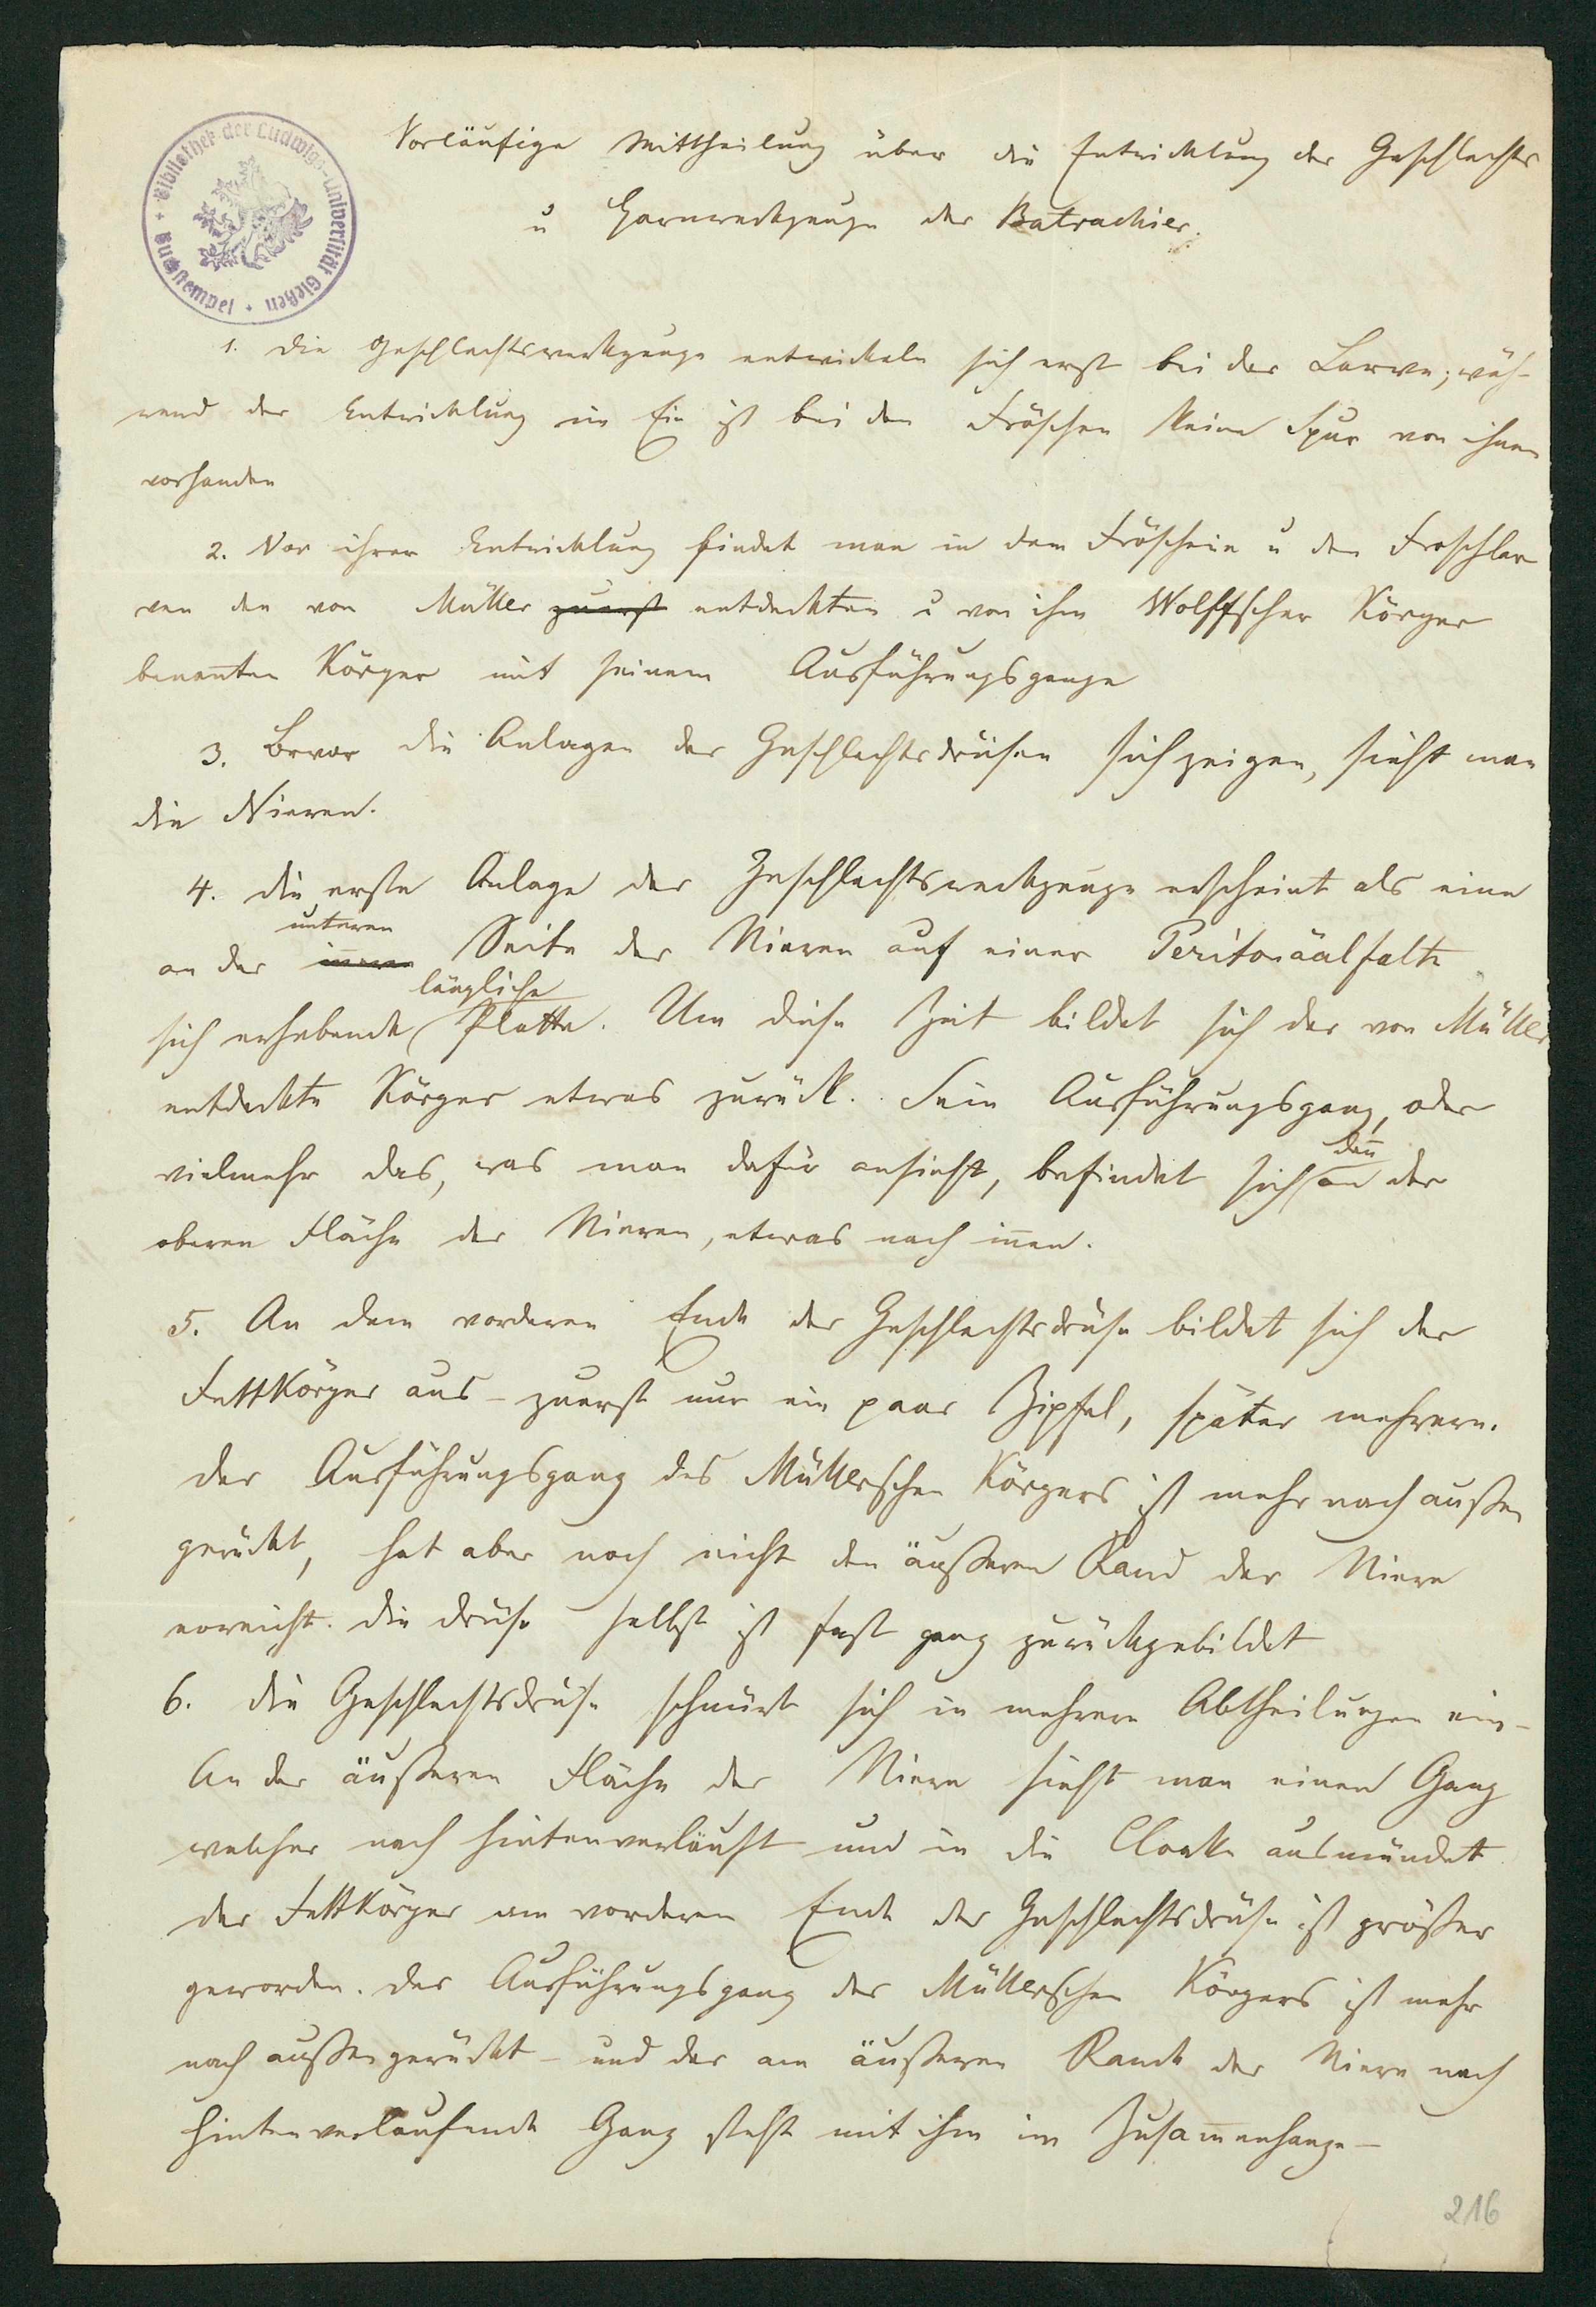 Bibliothek der Ludwigs-Universität Gießen + Buchstempel +
Vorläufige Mittheilung über die Entwicklung der Geschlechts
u Harnwerkzeuge der Batrachier.
1. Die Geschlechtswerkzeuge entwickeln sich erst bei der Larve; wäh-
rend der Entwicklung im Ei ist bei den Fröschen keine Spur von ihnen
vorhanden
2. Vor ihrer Entwicklung findet man in dem Fröschein u den Froschlar
ven den von Müller zuerst entdeckten u von ihm Wolffscher Körper
benannten Körper mit seinem Ausführungsgange
3. Bevor die Anlagen der Geschlechtsdrüsen sich zeigen, sieht man
die Nieren.
4. Die erste Anlage der Geschlechtswerkzeuge erscheint als eine
unteren
an der inneren Seite der Nieren auf einer Peritonäalfalte
längliche
sich erhebende Platte. Um diese Zeit bildet sich der von Müller
entdeckte Körper etwas zurück. Sein Ausführungsgang, oder
den̅
vielmehr das, was man dafür ansieht, befindet sich an der
oberen Fläche der Nieren, etwas nach in̅en.
5. An dem vorderen Ende der Geschlechtsdrüse bildet sich der
Fettkörper aus - zuerst nur ein paar Zipfel, später mehrere.
Der Ausführungsgang des Müllerschen Körpers ist mehr nach außen
gerückt, hat aber noch nicht den äußeren Rand der Niere
erreicht. Die Drüse selbst ist fast ganz zurückgebildet
6. Die Geschlechtsdrüse schnürt sich in mehrere Abtheilungen ein -
An der äußeren Fläche der Niere sieht man einen Gang
welcher nach hinten verläuft und in die Cloake ausmündet
Der Fettkörper am vorderen Ende der Geschlechtsdrüse ist größer
geworden. Der Ausführungsgang des Müllerschen Körpers ist mehr
nach außen gerückt - und der am äußeren Rande der Niere nach
hinten verlaufende Gang steht mit ihm im Zusam̅enhange -
216